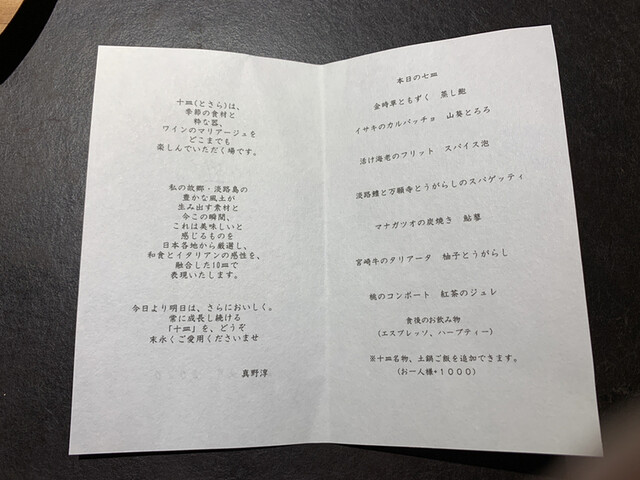 十皿(とさら)は、
季節の食材と
粋な器、
ワインのマリアージュを
どこまでも
楽しんでいただく場です。
私の故郷・淡路島の
豊かな風土が
生み出す素材と
今この瞬間、
これは美味しいと
感じるものを
日本各地から厳選し、
和食とイタリアンの感性を、
融合した10皿で
表現いたします。
今日より明日は、さらにおいしく。
常に成長し続ける
「十皿」を、どうぞ
末永くご愛用くださいませ
真野淳
本日の七皿
金時草ともずく 蒸し鮑
イサキのカルパッチョ 山葵とろろ
活け海老のフリット スパイス泡
淡路鱧と万願寺とうがらしのスパゲッティ
マナガツオの炭焼き 鮎醤
宮崎牛のタリアータ 柚子とうがらし
桃のコンポート 紅茶のジュレ
食後のお飲み物
(エスプレッソ、ハーブティー)
※十皿名物、土鍋ご飯を追加できます。
(お一人様+1000)